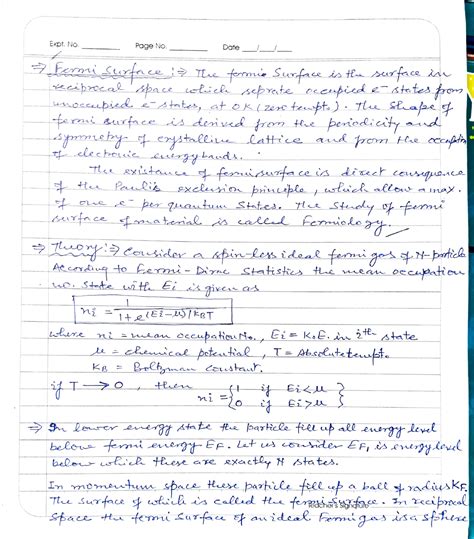 Expt. No. ________ Page No. ________ Date __/__/__
⇒ Fermi Surface :⇒ The fermi Surface is the surface in
reciprocal space which seprate occupied e⁻ states from
unoccupied e⁻ states, at 0K (zero tempt.). The Shape of
fermi surface is derived from the periodicity and
symmetry of crystalline lattice and from the occupation
of electronic energy bands.
The existance of fermi surface is direct consequence
of the Pauli's exclusion principle, which allow a max.
of one e⁻ per quantum States. The Study of fermi
surface of material is called Fermiology.
⇒ Theory :⇒ Consider a spin-less ideal fermi gas of N-particle
According to Fermi-Dirac Statistics the mean occupation
no. State with Ei is given as
ni = 1 / 1+e^(Ei-μ)/KBT
where ni = mean occupation No., Ei = K.E. in ith state
μ = chemical potential, T = Absolute tempt.
KB = Boltzman Constant.
if T → 0, then ni = {1 if Ei<μ
0 if Ei>μ}
⇒ In lower energy state the particle fill up all energy level
below fermi energy EF. Let us consider EF, is energy level
below which these are exactly N states.
In momentum space these particle fill up a ball of radius KF.
The surface of which is called the fermi surface. In reciprocal
Teacher's Signature
Space the fermi Surface of an ideal Fermi gas is a Sphere